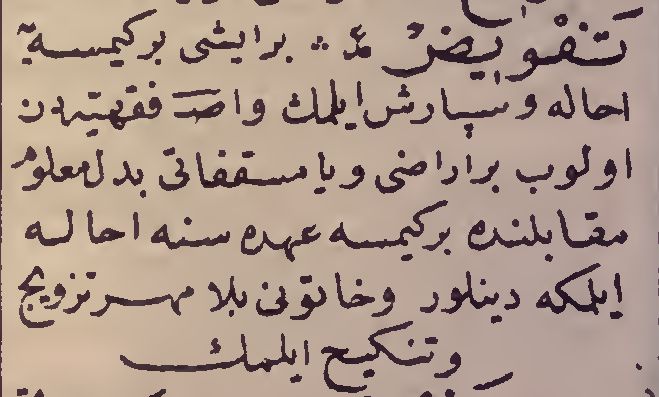 تفويض ع ∴ بر ايشى بر كيمسه يه
احاله و سپارش ايلمك واصطلاح فقهيه دن
اولوب بر اراضى ويا مسقفاتى بدل معلوم
مقابلنده بر كيمسه عهده سنه احاله
ايلمكه دينلور وخاتونى بلا مهر تزويج
وتنكيح ايلمك